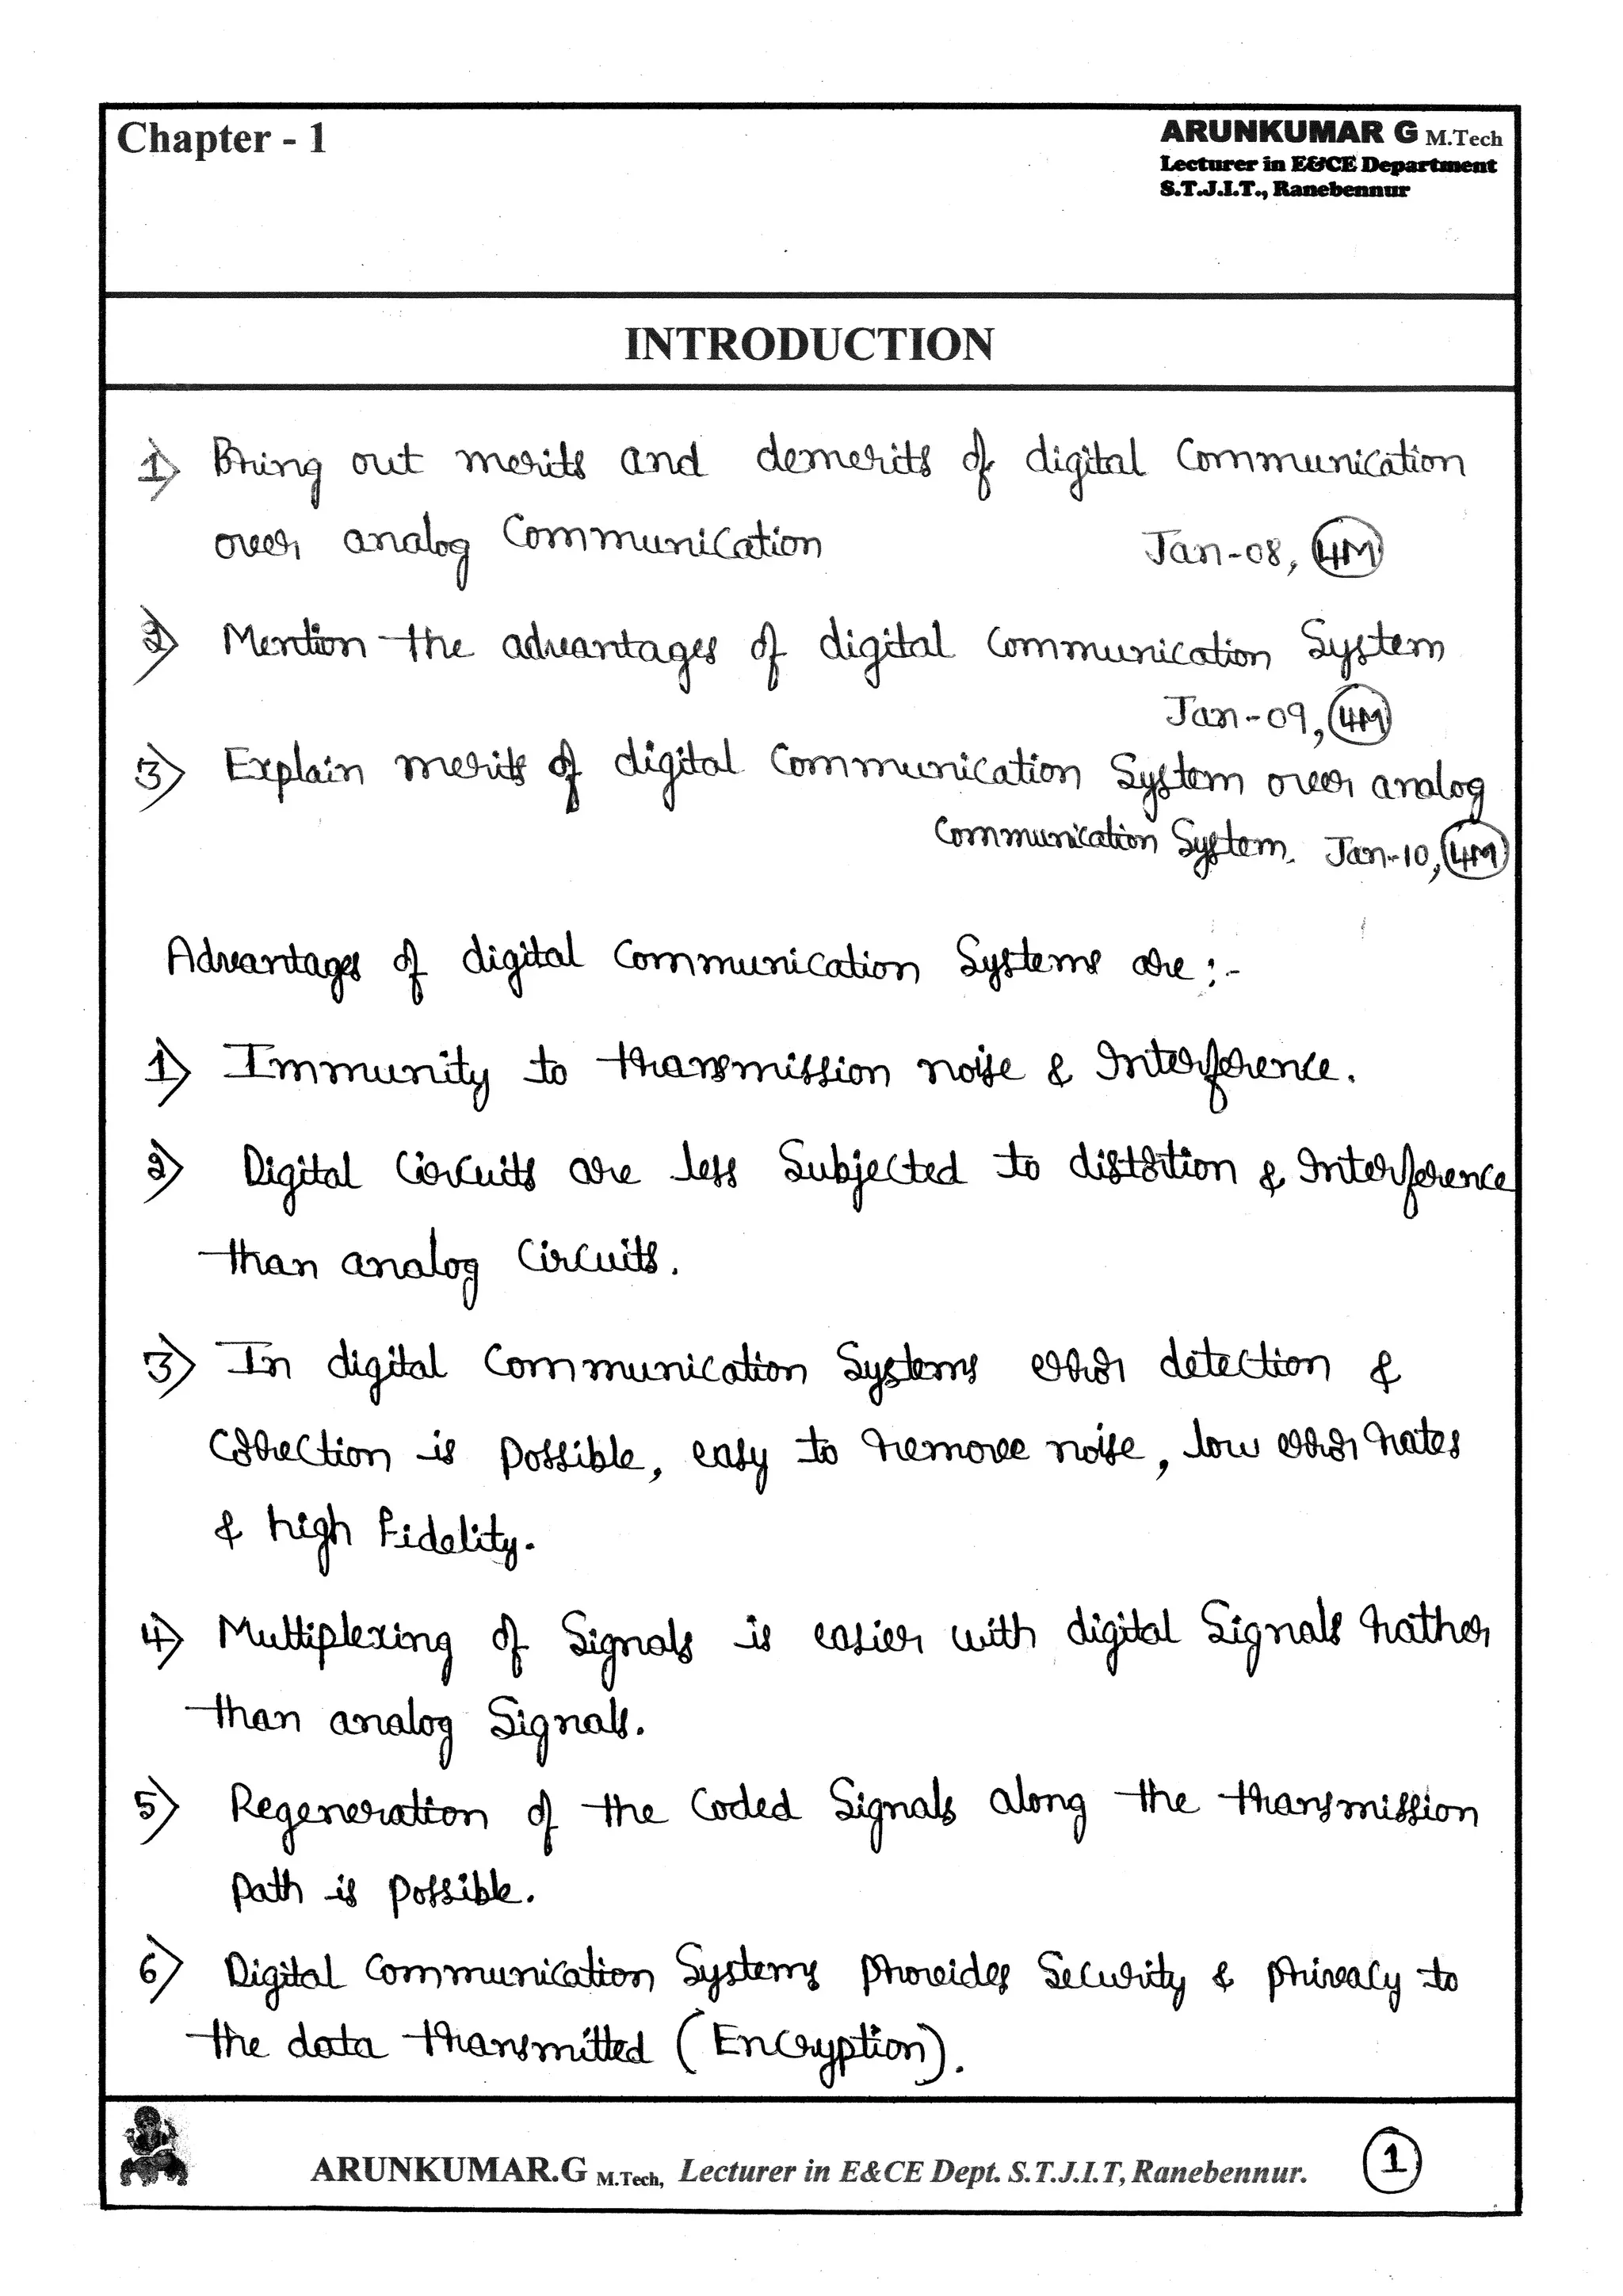 Chapter - 1
ARUNKUMAR G M.Tech
Lecturer in E&CE Department
S.T.J.I.T., Ranebennur
INTRODUCTION
1) Bring out merits and demerits of digital Communication
over analog Communication Jan-08, 4M
2) Mention the advantages of digital Communication System
Jan-09, 4M
3) Explain merits of digital Communication System over analog
Communication System. Jan-10, 4M
Advantages of digital Communication Systems are :-
1) Immunity to transmission noise & Interference.
2) Digital Circuits are less Subjected to distortion & Interference
than analog Circuits.
3) In digital Communication Systems error detection &
Correction is possible, easy to remove noise, low error rates
& high fidelity.
4) Multiplexing of Signals is easier with digital Signals rather
than analog Signals.
5) Regeneration of the Coded Signals along the transmission
path is possible.
6) Digital Communication Systems provides Security & privacy to
the data transmitted (Encryption).
ARUNKUMAR.G M.Tech, Lecturer in E&CE Dept. S.T.J.I.T, Ranebennur. 1